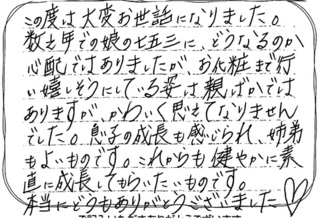 この度は大変お世話になりました。
数え年での娘の七五三に、どうなるのか
心配ではありましたが、お化粧まで行
い嬉しそうにしている姿は親ばかでは
ありますが、かわいく思えてなりません
でした。息子の成長も感じられ、姉弟
もよいものです。これからも健やかに素
直に成長してもらいたいものです。
本当にどうもありがとうございました♡